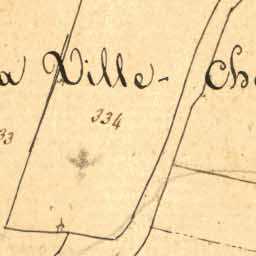 a Ville- Ch
334
33